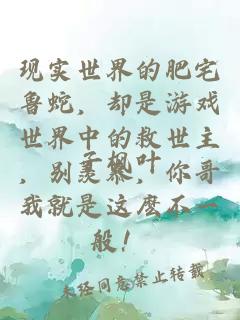 现实世界的肥宅
鲁蛇，却是游戏
世界中的救世主
，别羡慕，你哥
我就是这麽不一
般！
子枫叶
未经同意禁止转载